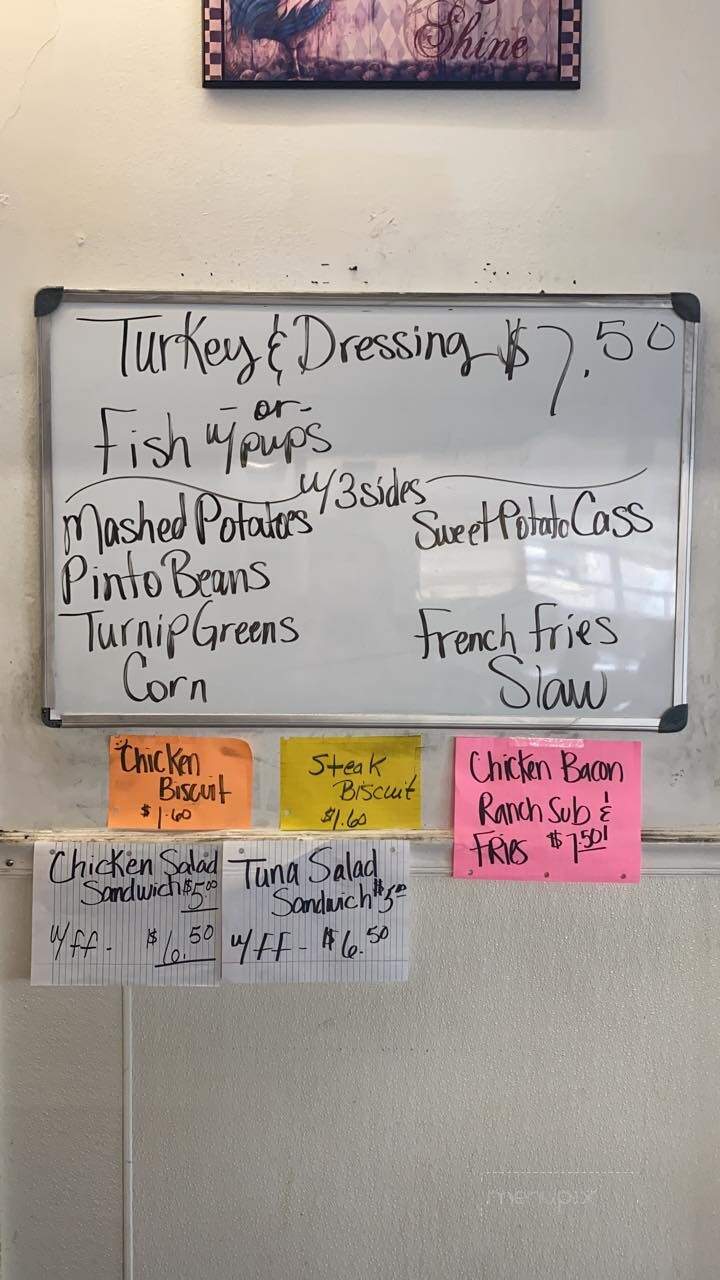 Shine
Turkey & Dressing $7.50
-or-
Fish w/pups
w/3sides
Mashed Potatoes
Sweet Potato Cass
Pinto Beans
Turnip Greens
French Fries
Corn
Slaw
Chicken
Biscuit
$1.60
Steak
Biscuit
$1.60
Chicken Bacon
Ranch Sub &
Fries $7.50!
Chicken Salad
Sandwich $5.00
w/ff - $6.50
Tuna Salad
Sandwich $5.00
w/ff - $6.50
menupix